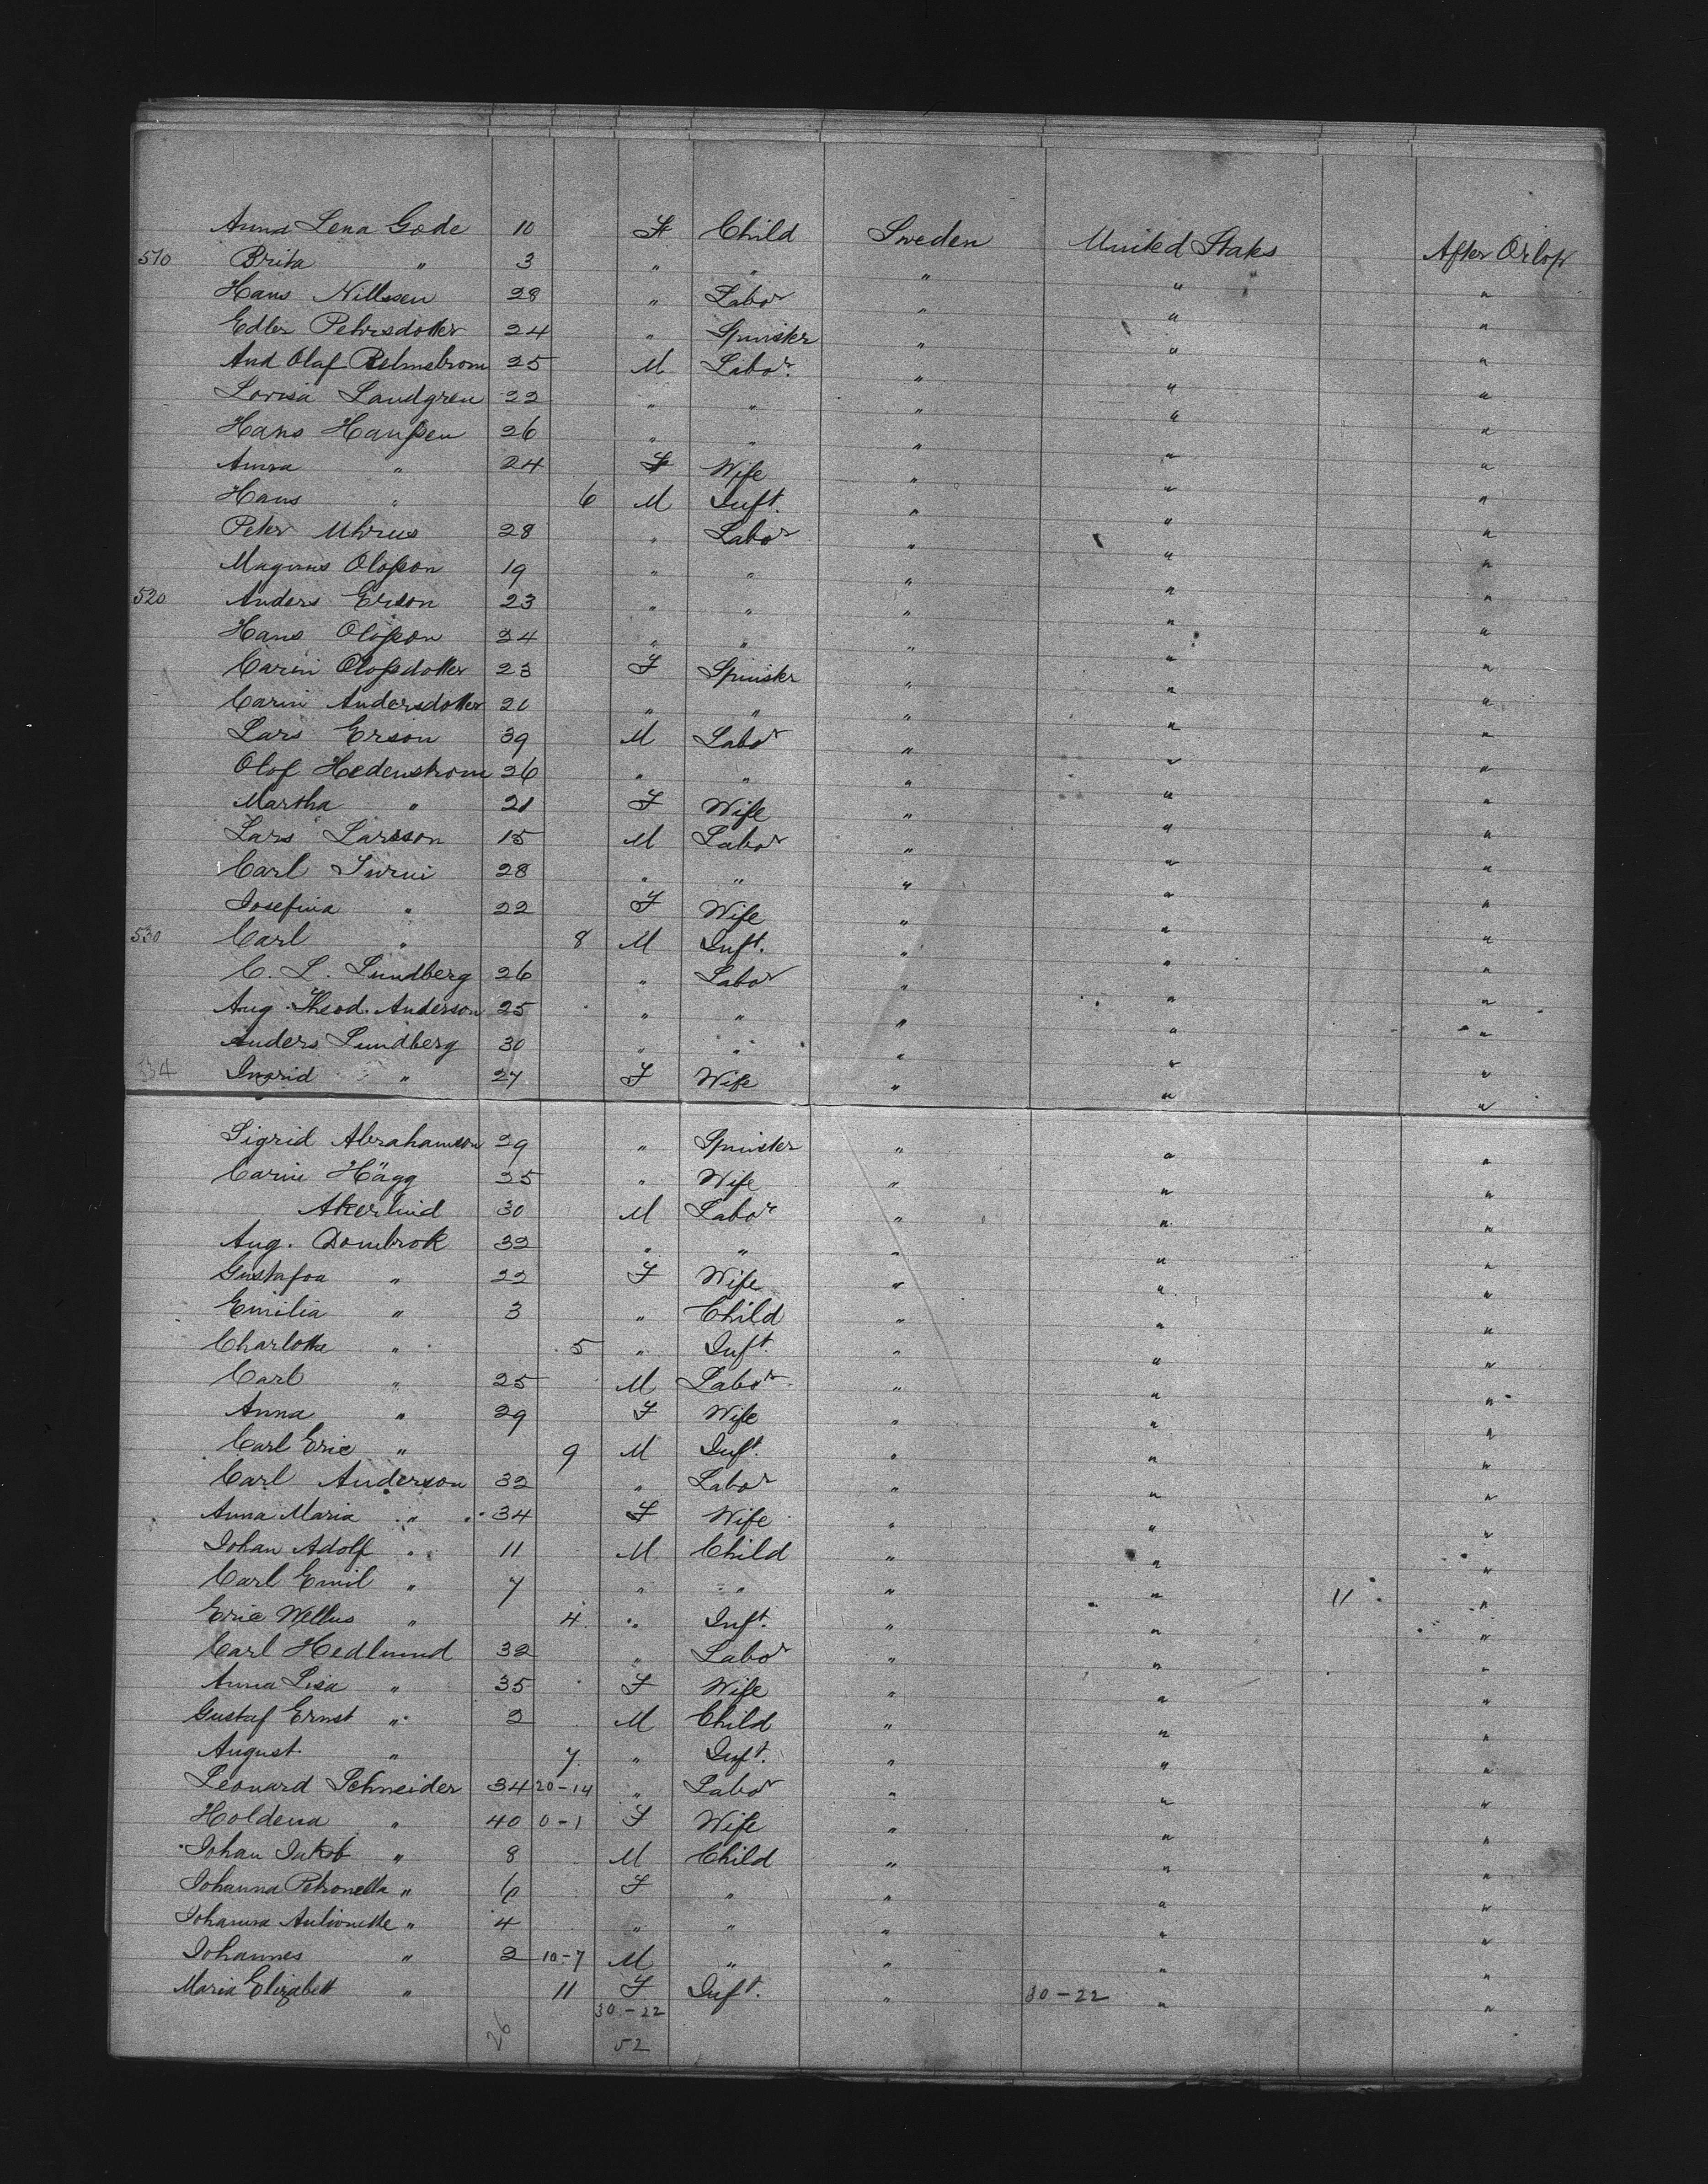 Anna Lena Gode 10 F Child Sweden United States After Orlop
510 Brita " 3 " " " " "
Hans Nillssen 28 " Labor " " "
Edler Pehrsdotter 24 " Spinster " " "
And Olaf 25 M Labor. " " "
Lovisa Landgren 22 " " " " "
Hans Hanssen 26 " " " " "
Anna " 24 F Wife " " "
Hans " 6 M Inft. " " "
Peter 28 " Labor " " "
Magnus Olofson 19 " " " " "
520 Anders Erson 23 " " " " "
Hans Olofson 24 " " " " "
Carin Olofsdotter 23 F Spinster " " "
Carin Andersdotter 21 " " " " "
Lars Erson 39 M Labor " " "
Olof Hedenstrom 26 " " " " "
Martha " 21 F Wife " " "
Lars Larsson 15 M Labor " " "
Carl 28 " " " " "
Josefina " 22 F Wife " " "
530 Carl " 8 M Inft. " " "
C. L. Lundberg 26 " Labor " " "
Aug. Theod. Anderson 25 " " " " "
Anders Lundberg 30 " " " " "
534 Ingrid " 27 F Wife " " "
Sigrid Abrahamson 29 " Spinster " " "
Carin Hägg 25 " Wife " " "
Akerlind 30 M Labor " " "
Aug. Dombrok 32 " " " " "
Gustafva " 22 F Wife " " "
Emilia " 3 " Child " " "
Charlotta " 5 " Inft. " " "
Carl " 25 M Labor " " "
Anna " 29 F Wife " " "
Carl Eric " 9 M Inft. " " "
Carl Anderson 32 " Labor " " "
Anna Maria " 34 F Wife " " "
Johan Adolf " 11 M Child " " "
Carl Emil " 7 " " " " 11 "
Eric " 4 " Inft. " " "
Carl Hedlund 32 " Labor " " "
Anna Lisa " 35 F Wife " " "
Gustaf Ernst " 2 M Child " " "
August " 7 " Inft. " " "
Leonard Schneider 34 20-14 " Labor " " "
Holdena " 40 0-1 F Wife " " "
Johan Jakob " 8 M Child " " "
Johanna Petronella " 6 F " " " "
Johanna Antionette " 4 " " " " "
Johannes " 2 10-7 M " " " "
Maria Elizabett " 11 F Inft. " 30-22 " "
30-22
26 52